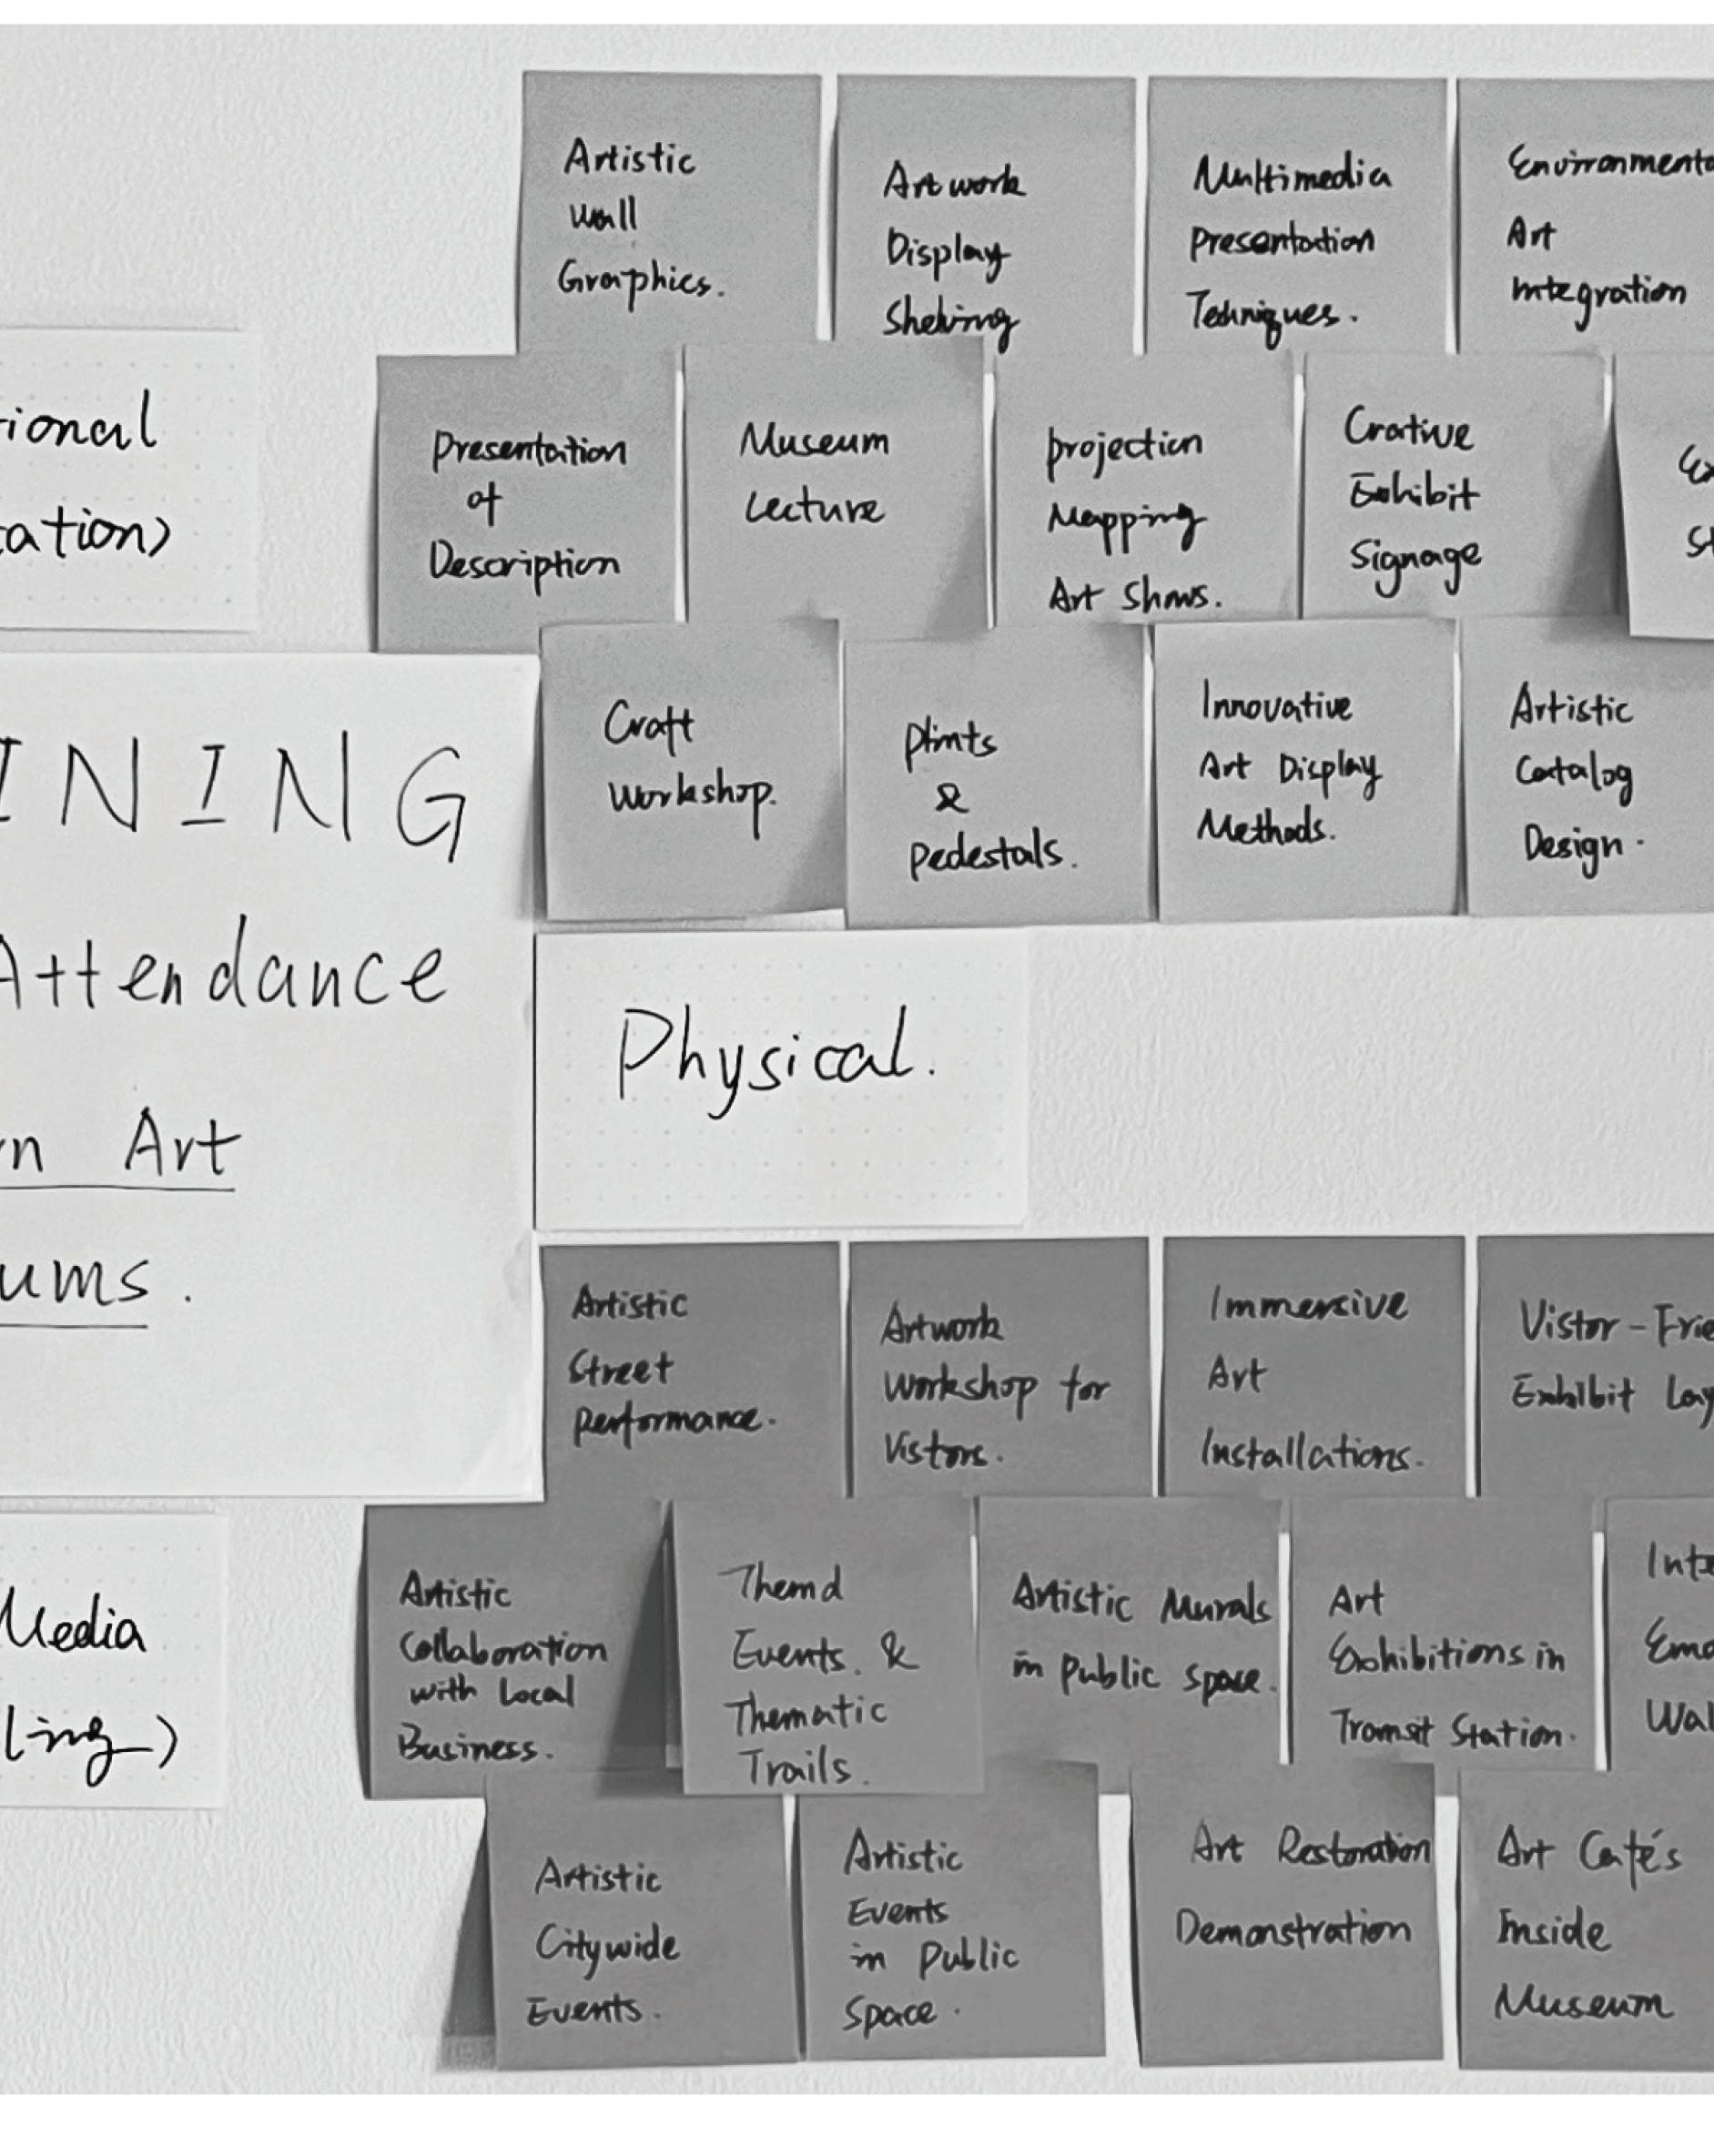 Artistic
Wall
Graphics.
Artwork
Display
Shelving
Multimedia
Presentation
Techniques.
Environmenta
Art
Integration
ional
tation)
Presentation
of
Description
Museum
Lecture
projection
Mapping
Art Shows.
Crative
Exhibit
Signage
Ex
St
INING
Attendance
rn Art
ums.
Craft
Workshop.
&
Pedestals.
Innovative
Art Display
Methods.
Artistic
Catalog
Design.
Physical.
Artistic
Street
Performance.
Artwork
Workshop for
Vistors.
Immersive
Art
Installations.
Vistor-Frie
Exhibit Lay
Media
ling)
Artistic
Collaboration
with Local
Business.
Themd
Events. &
Thematic
Trails.
Artistic Murals
in Public Space.
Art
Exhibitions in
Transit Station.
Inte
Emo
Wal
Artistic
Citywide
Events.
Artistic
Events
in Public
Space.
Art Restoration
Demonstration
Art Cafés
Inside
Museum